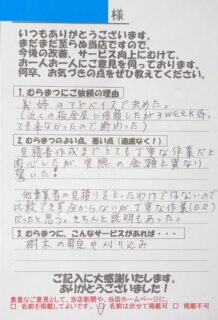 様
いつもありがとうございます。
まだまだ至らぬ当店ですので、
今後の改善、サービス向上にむけて、
お一人お一人にご意見を伺っております。
何卒、お気づきの点をぜひ教えてください。
1. むらまつにご依頼の理由
義姉のアドバイスで決めた。
(近くの板金屋に依頼したが3WEEK待
で出来なかったので断わった)
2. むらまつのよい点、悪い点(遠慮なく!)
見積書作成までとても丁寧な作業だと
関心したが、実際の金額と異なり
驚いた!
他事業者の見積りをとったわけではないので
比較できず分からないが丁寧な作業
だったと思う。きちんと説明もあった
3. むらまつに、こんなサービスがあれば・・・
樹木の剪定や刈り込み
ご記入に大感謝いたします。
ありがとうございました!
貴重なご意見として、当店新聞や、当店ホームページに、
□ 名前を掲載してよいです。 □ 名前は伏せて掲載可 □ 掲載不可